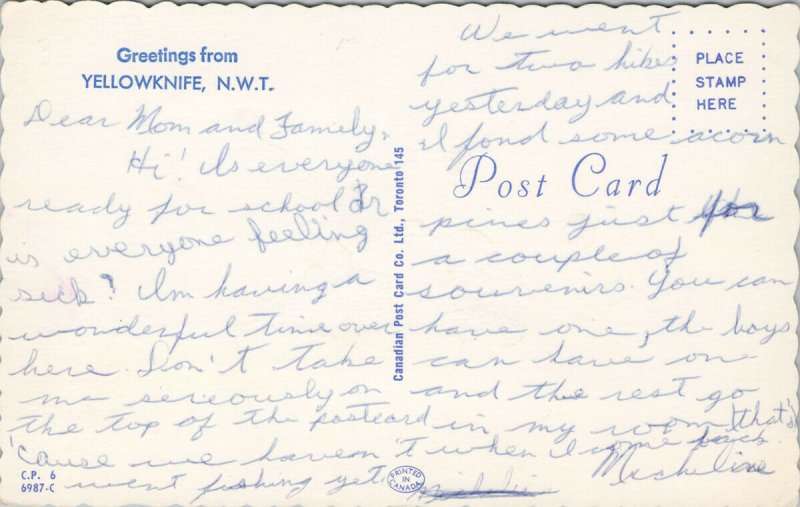 Greetings from
YELLOWKNIFE, N.W.T.
Dear Mom and Family,
Hi! Is everyone
ready for school Or
is everyone feeling
sick? Im having a
wonderful time over
here. Don't take
me seriously on
the top of the postcard
'cause we haven't
went fishing yet
C.P. 6
6987-C
Canadian Post Card Co. Ltd., Toronto 145
PRINTED IN CANADA
We went
for two hikes
yesterday and
I fond some acorn
PLACE
STAMP
HERE
Post Card
pines just for
a couple of
souvenirs. You can
have one, the boys
can have one
and the rest go
in my room (that's
when I come back
Micheline
Micheline